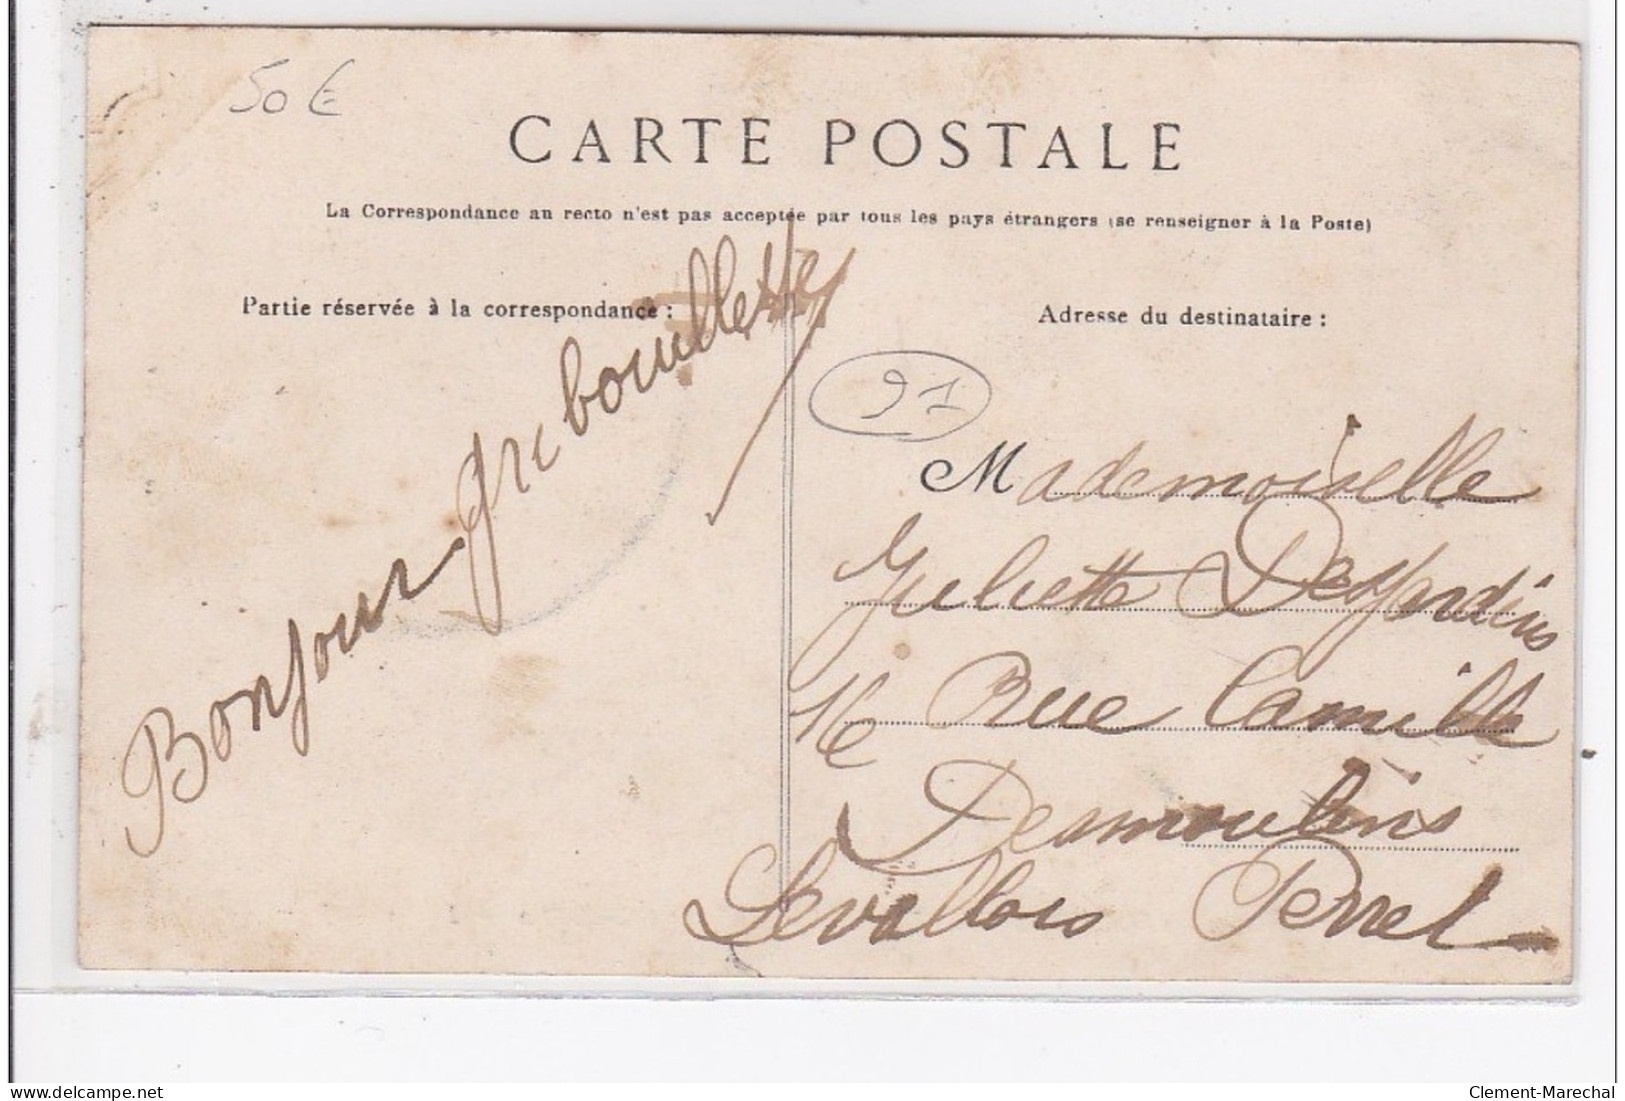 50 €
CARTE POSTALE
La Correspondance au recto n'est pas acceptée par tous les pays étrangers (se renseigner à la Poste)
Partie réservée à la correspondance :
Bonjour
Adresse du destinataire :
91
Mademoiselle
Juliette Desjardins
16 Rue Camille
Desmoulins
Levallois Perret
delcampe.net
Clement-Marechal